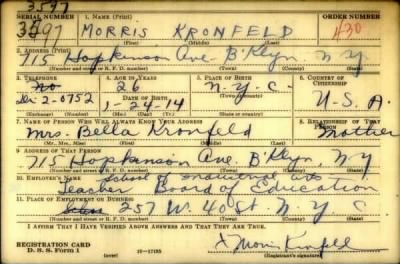 3597
SERIAL NUMBER 1. NAME (Print) ORDER NUMBER
3597 MORRIS KRONFELD 430
(First) (Middle) (Last)
2. ADDRESS (Print)
715 Hopkinson Ave. B'klyn. N.Y.
(Number and street or R. F. D. number) (Town) (County) (State)
3. TELEPHONE 4. AGE IN YEARS 5. PLACE OF BIRTH 6. COUNTRY OF CITIZENSHIP
no 26 N.Y.C.
DATE OF BIRTH (Town or county)
Di-2-0752 1-24-14 U.S.A.
(Exchange) (Number) (Mo.) (Day) (Yr.) (State or country)
7. NAME OF PERSON WHO WILL ALWAYS KNOW YOUR ADDRESS 8. RELATIONSHIP OF THAT PERSON
Mrs. Bella Kronfeld Mother
(Mr., Mrs., Miss) (First) (Middle) (Last)
9. ADDRESS OF THAT PERSON
715 Hopkinson Ave. B'klyn, N.Y.
(Number and street or R. F. D. number) (Town) (County) (State)
10. EMPLOYER'S NAME School of Industrial Arts
Teacher Board of Education
11. PLACE OF EMPLOYMENT OR BUSINESS
School 257 W. 40 St. N.Y.C.
(Number and street or R. F. D. number) (Town) (County) (State)
I AFFIRM THAT I HAVE VERIFIED ABOVE ANSWERS AND THAT THEY ARE TRUE.
REGISTRATION CARD
D. S. S. Form 1 (over) 16—17105 (Registrant's signature)